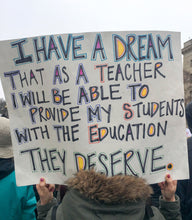 I HAVE A DREAM
THAT AS A TEACHER
I WILL BE ABLE TO
PROVIDE MY STUDENTS
WITH THE EDUCATION
THEY DESERVE.